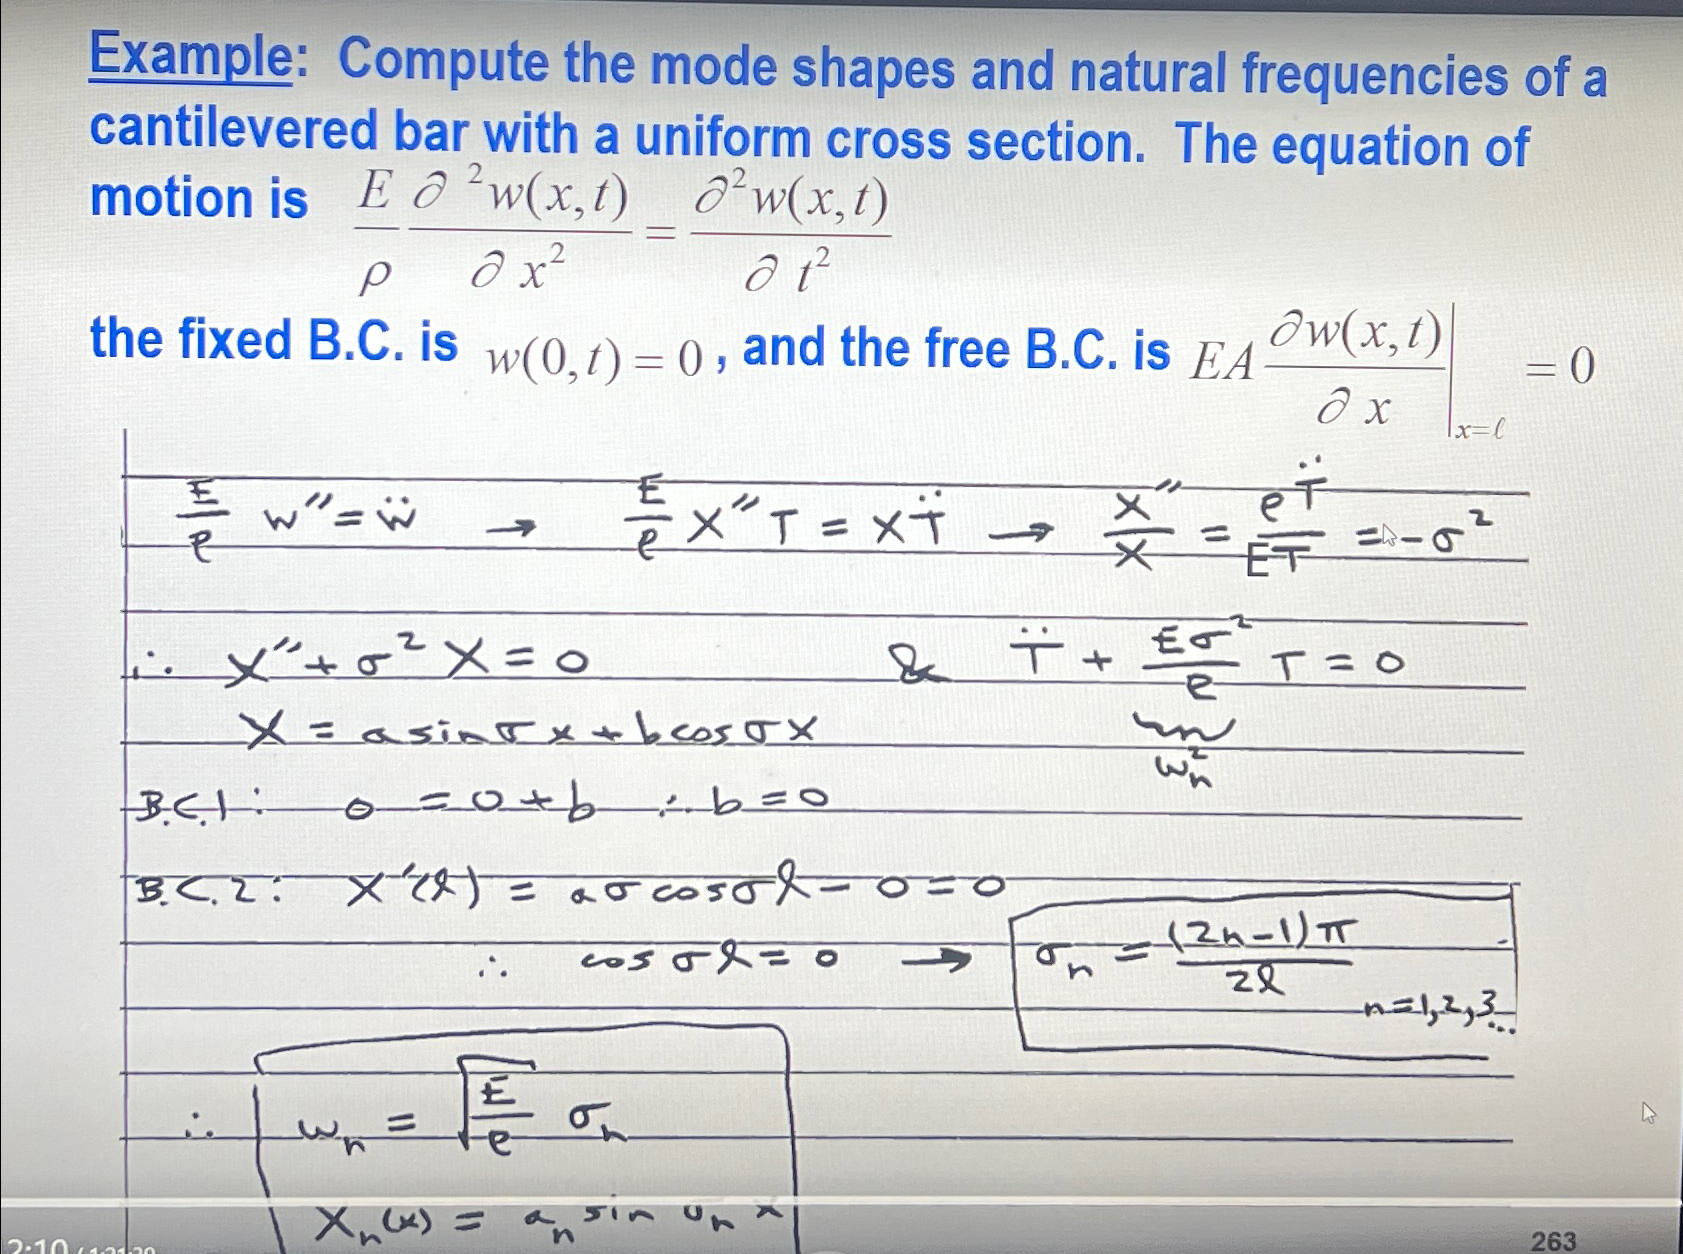 Example: Compute the mode shapes and natural frequencies of a
cantilevered bar with a uniform cross section. The equation of
motion is E/ρ ∂²w(x,t)/∂x² = ∂²w(x,t)/∂t²
the fixed B.C. is w(0,t) = 0, and the free B.C. is EA ∂w(x,t)/∂x |x=ℓ = 0
E/ρ w″ = ẅ → E/ρ X″T = XT̈ → X″/X = ρT̈/ET = -σ²
∴ X″ + σ²X = 0 & T̈ + Eσ²/ρ T = 0
X = a sin σx + b cos σx
ωn²
B.C.1: 0 = 0 + b ∴ b = 0
B.C.2: X′(ℓ) = aσ cos σℓ - 0 = 0
∴ cos σℓ = 0 → σn = (2n-1)π/2ℓ
n=1,2,3...
∴ ωn = √(E/ρ) σn
Xn(x) = an sin σn x
263